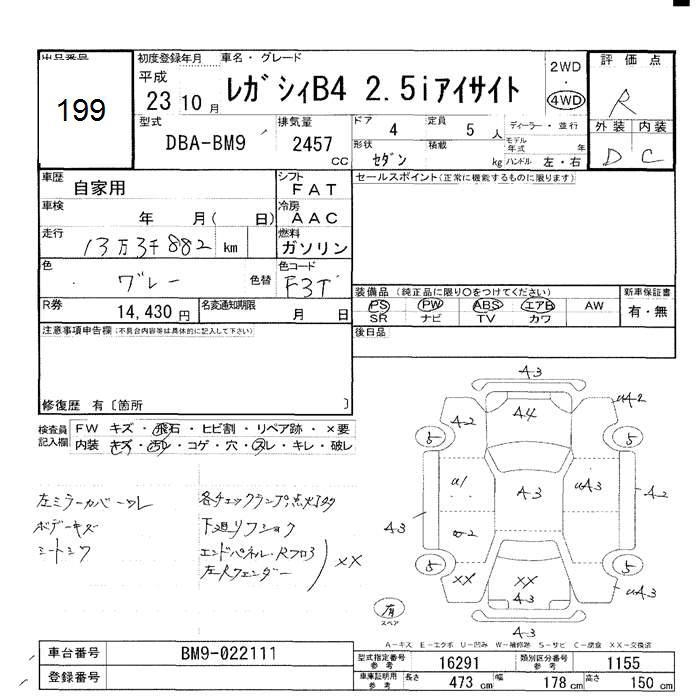 出品番号
199
初度登録年月
平成
23 10 月
車名・グレード
レガシィB4 2.5iアイサイト
2WD
・
4WD
評価点
R
外装 内装
D C
型式
DBA-BM9
排気量
2457
cc
ドア
4
定員
5 人
形状
セダン
積載
kg
ディーラー・並行
モデル年式 年
ハンドル 左・右
車歴
自家用
シフト
FAT
車検
年 月( 日)
冷房
AAC
走行
13万3千882 km
燃料
ガソリン
色
グレー
色替
色コード
R券
14,430 円
名変通知期限
月 日
セールスポイント(正常に機能するものに限ります)
装備品 (純正品に限り○をつけてください)
PS PW ABS エアB AW
SR ナビ TV カワ
新車保証書
有・無
後日品
注意事項申告欄(不具合内容等は具体的に記入して下さい)
修復歴 有〔箇所 〕
検査員記入欄
FW キズ・飛石・ヒビ割・リペア跡・×要
内装 キズ・汚レ・コゲ・穴・スレ・キレ・破レ
左ミラーカバーワレ
ボデーキズ
シートシワ
各チェックランプ点灯
下廻リフショク
エンドパネル・Rフロア
左Rフェンダー
XX
A3
A2
A4
A2
5
5
A3
A3
A2
A3
5
5
XX
XX
A3
A3
有
スペア
A-キズ E-エクボ U-凹み W-補修跡 S-サビ C-腐食 XX-交換済
車台番号
BM9-022111
登録番号
型式指定番号 参考
16291
類別区分番号 参考
1155
車庫証明用 参考
長さ 473 cm
幅 178 cm
高さ 150 cm